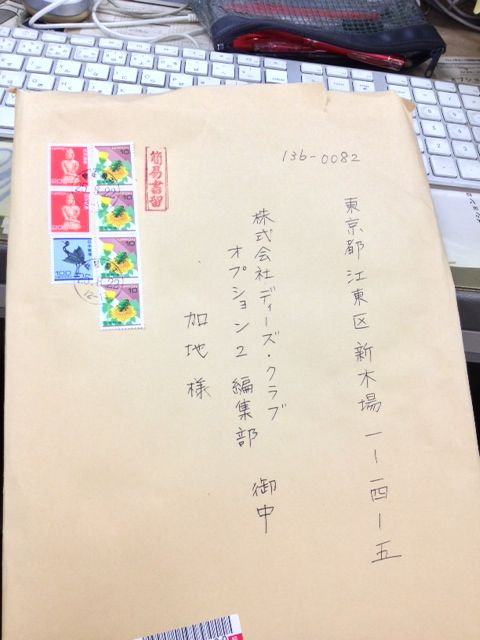 136-0082
東京都江東区新木場一ー一四ー五
株式会社ディーズ・クラブ
オプション2 編集部 御中
加地様
簡易書留
10
10
10
10
100